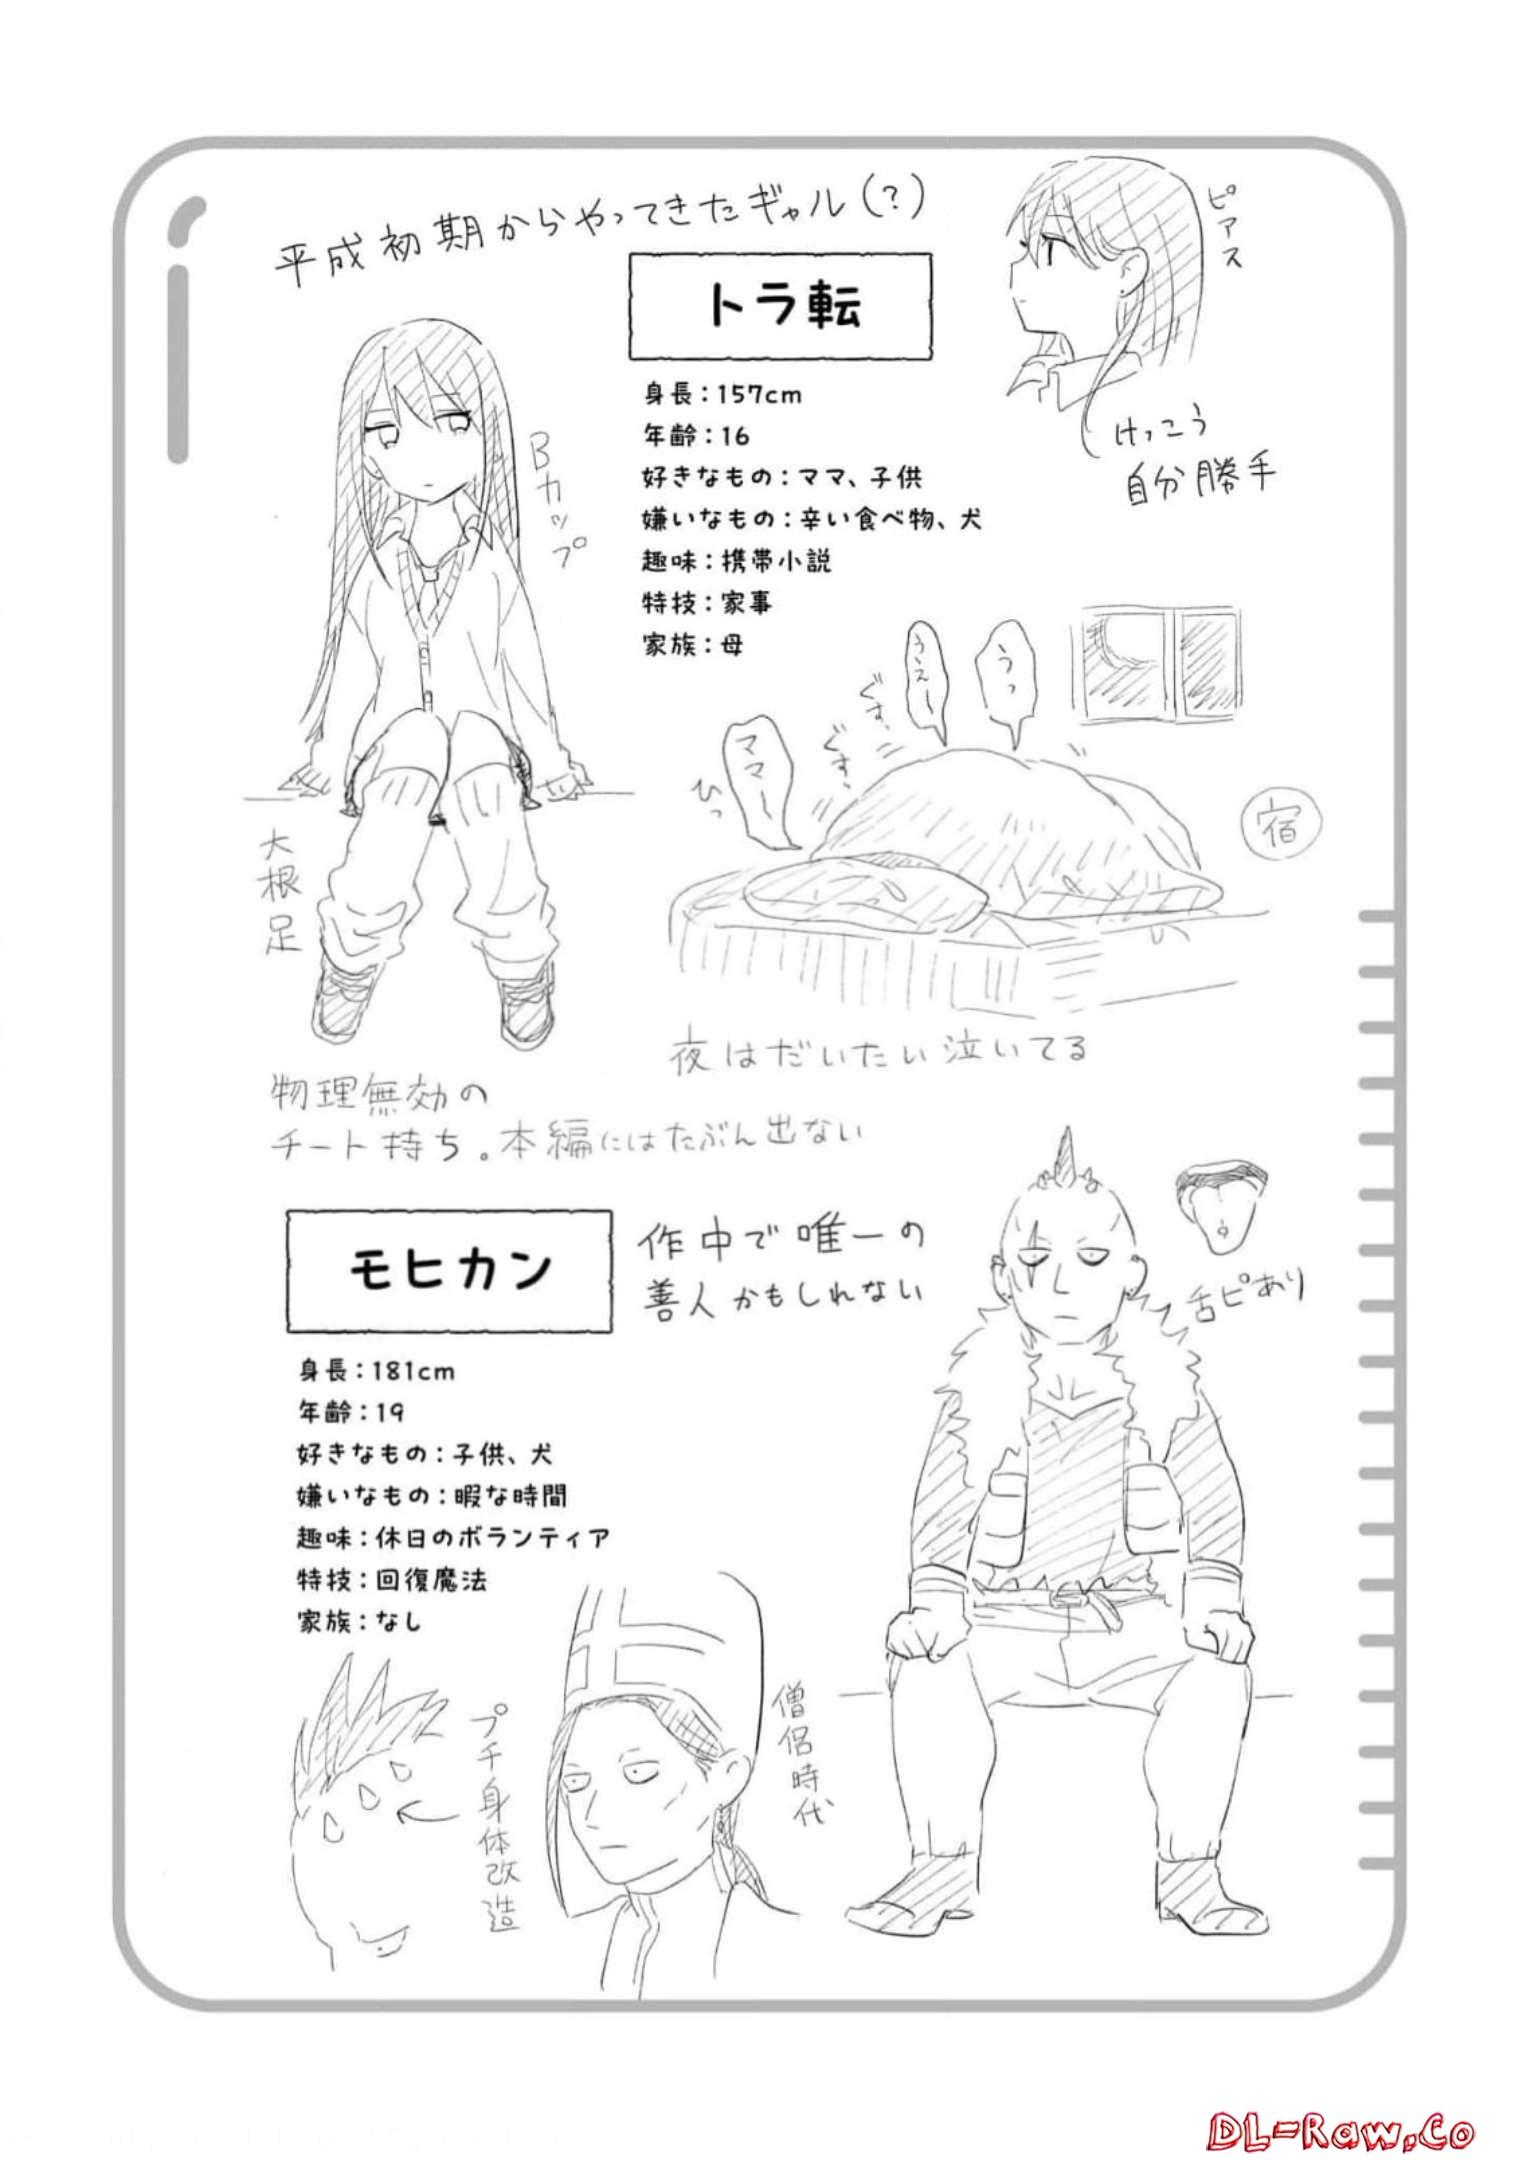 平成初期からやってきたギャル(?)
トラ転
ピアス
けっこう
自分勝手
身長：157cm
年齢：16
好きなもの：ママ、子供
嫌いなもの：辛い食べ物、犬
趣味：携帯小説
特技：家事
家族：母
Bカップ
大根足
うっ
うえ〜
ぐす、
ぐす、
ママ〜
ひっ
宿
夜はだいたい泣いてる
物理無効の
チート持ち。本編にはたぶん出ない
モヒカン
作中で唯一の
善人かもしれない
舌ピあり
身長：181cm
年齢：19
好きなもの：子供、犬
嫌いなもの：暇な時間
趣味：休日のボランティア
特技：回復魔法
家族：なし
プチ身体改造
僧侶時代
DL-Raw.Co